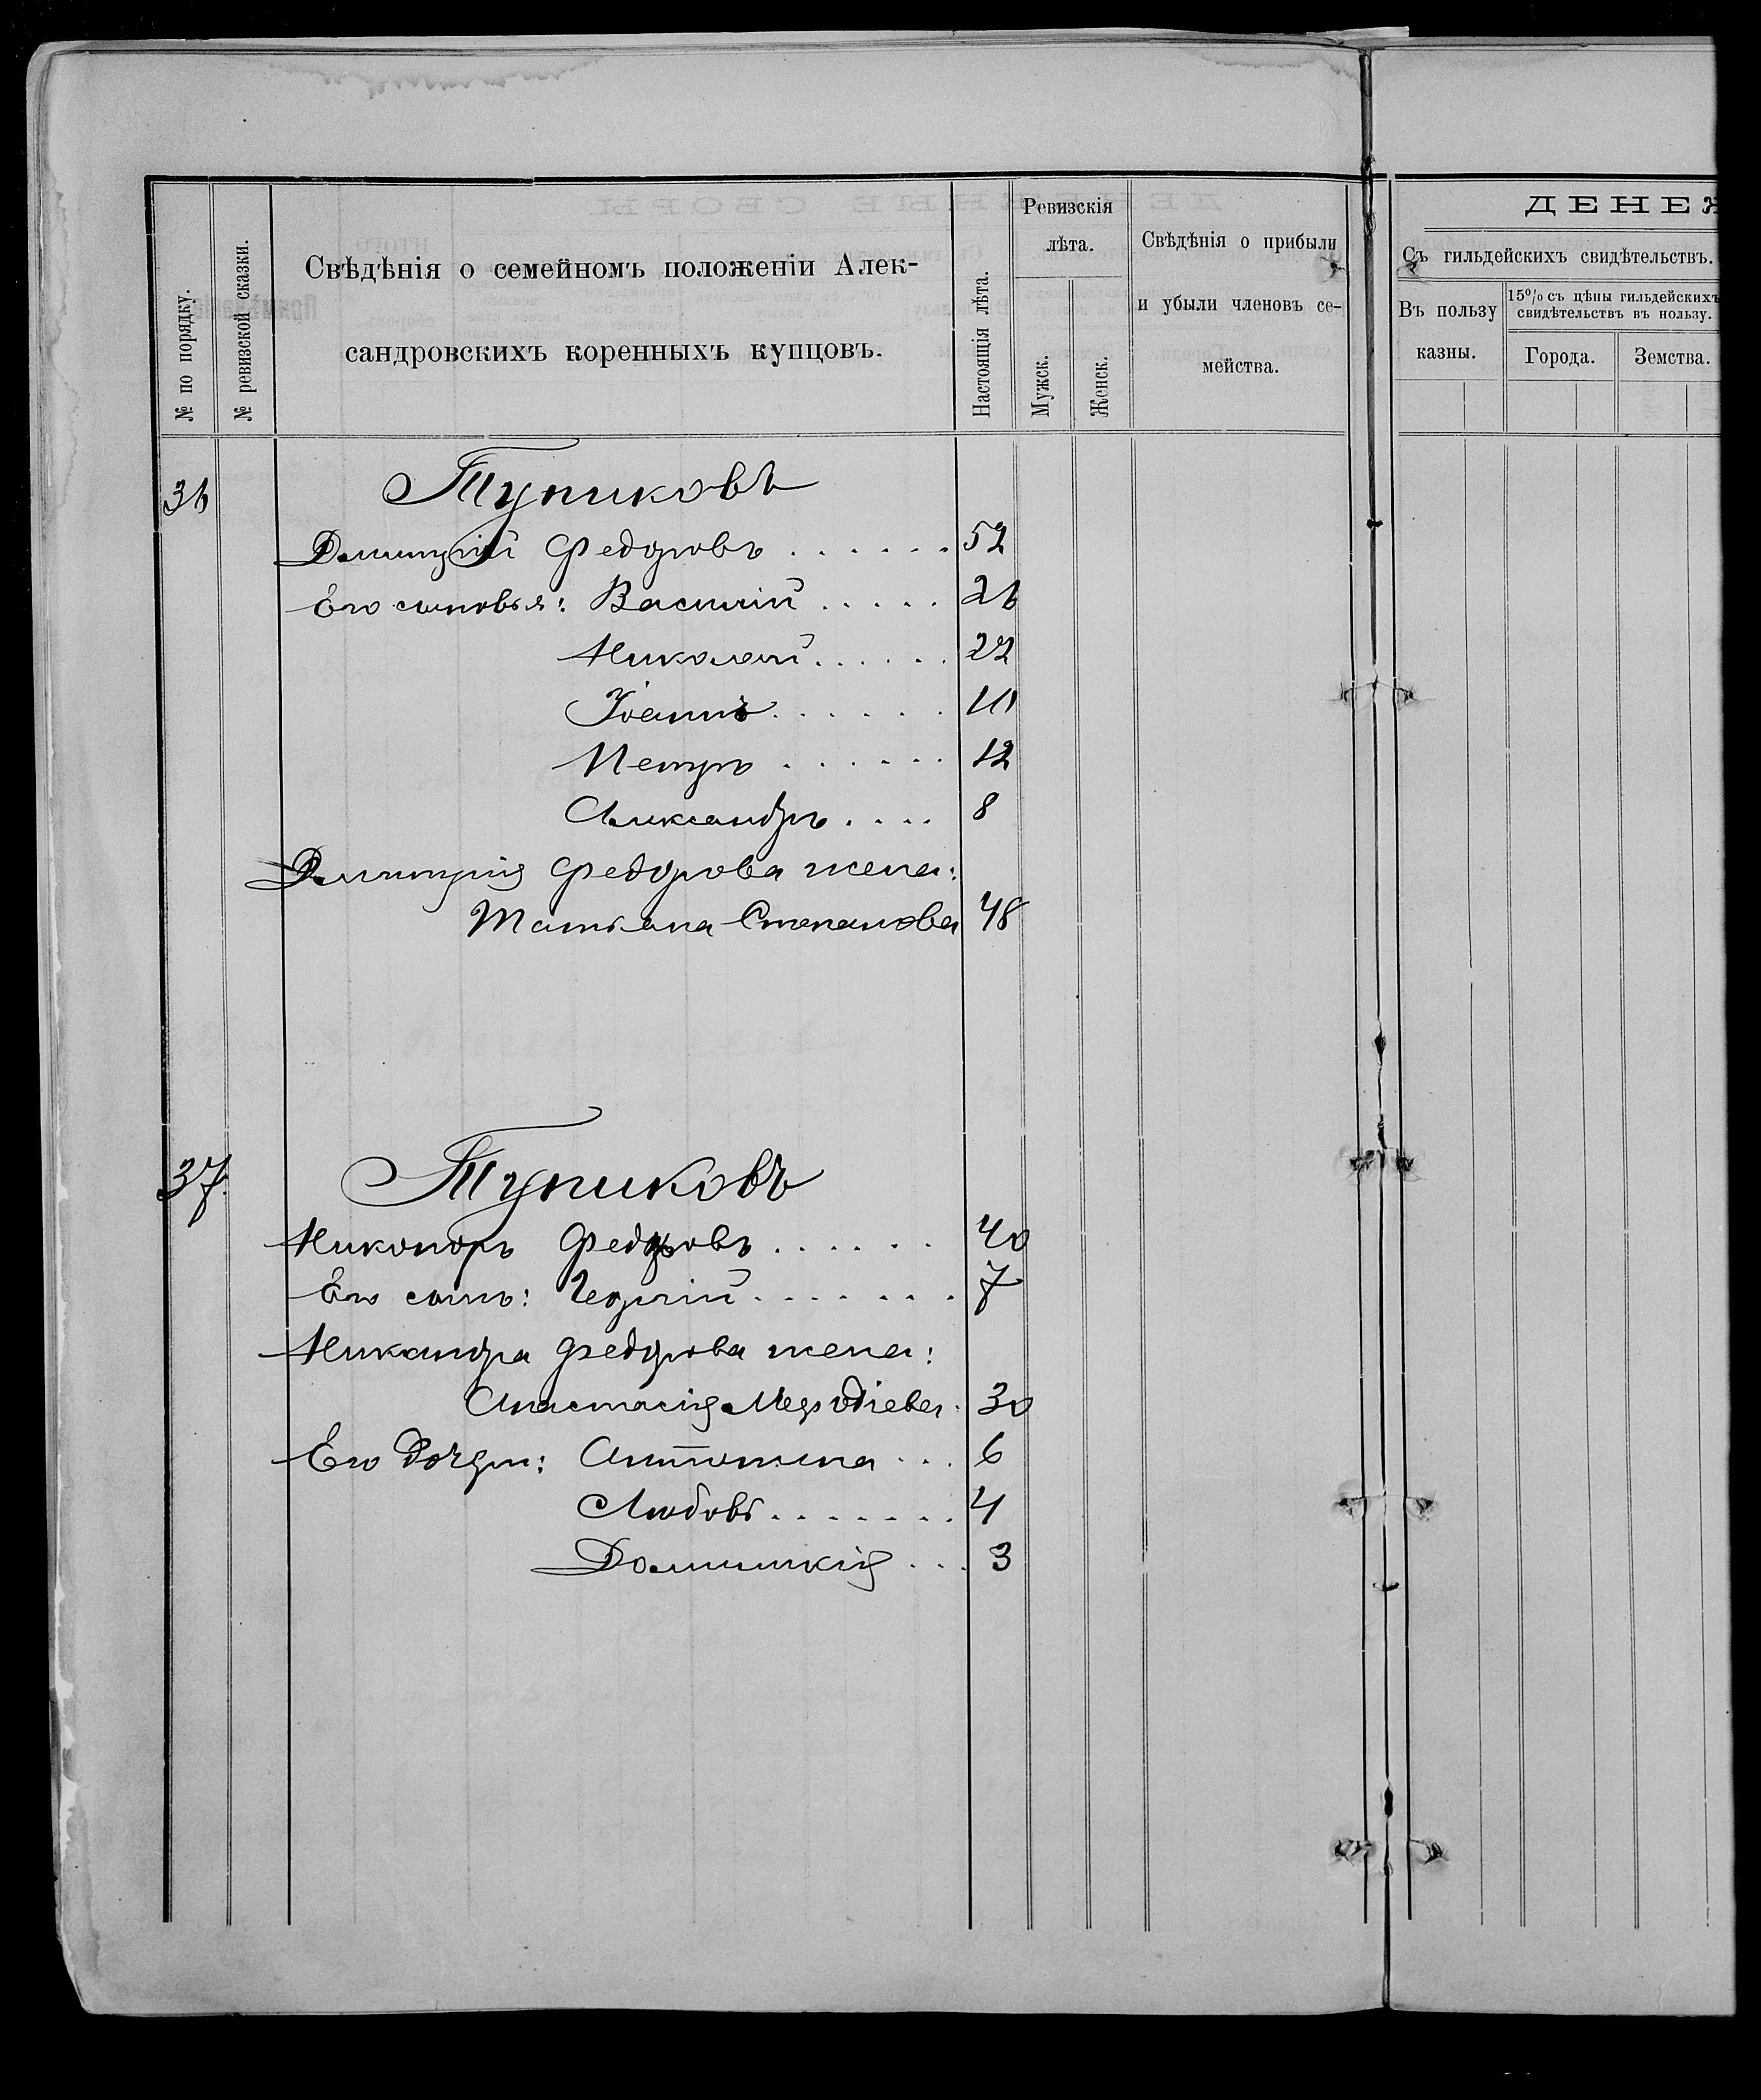 № по порядку.
№ ревизской сказки.
Свѣдѣнія о семейномъ положеніи Алек-
сандровскихъ коренныхъ купцовъ.
Настоящія лѣта.
Ревизскія
лѣта.
Мужск.
Женск.
Свѣдѣнія о прибыли
и убыли членовъ се-
мейства.
ДЕНЕЖ
Съ гильдейскихъ свидѣтельствъ.
Въ пользу
казны.
15% съ цѣны гильдейскихъ
свидѣтельствъ въ пользу.
Города.
Земства.
36 Тупиковъ
Димитрій Федоровъ . . . . . . 52
Его сыновья: Василій . . . . . 26
Николай . . . . . . 22
Іоаннъ . . . . . .
Петръ . . . . . . 12
Александръ . . . . 8
Димитрія Федорова жена:
Татьяна Степанова 48
37. Тупиковъ
Никоноръ Федоровъ . . . . . . 40
Его сынъ: Георгій . . . . . . . 7
Никандра Федорова жена:
Анастасія Меѳодіева . 30
Его дочери: Антонина . . . 6
Любовь . . . . . . . 4
Домникія . . . 3